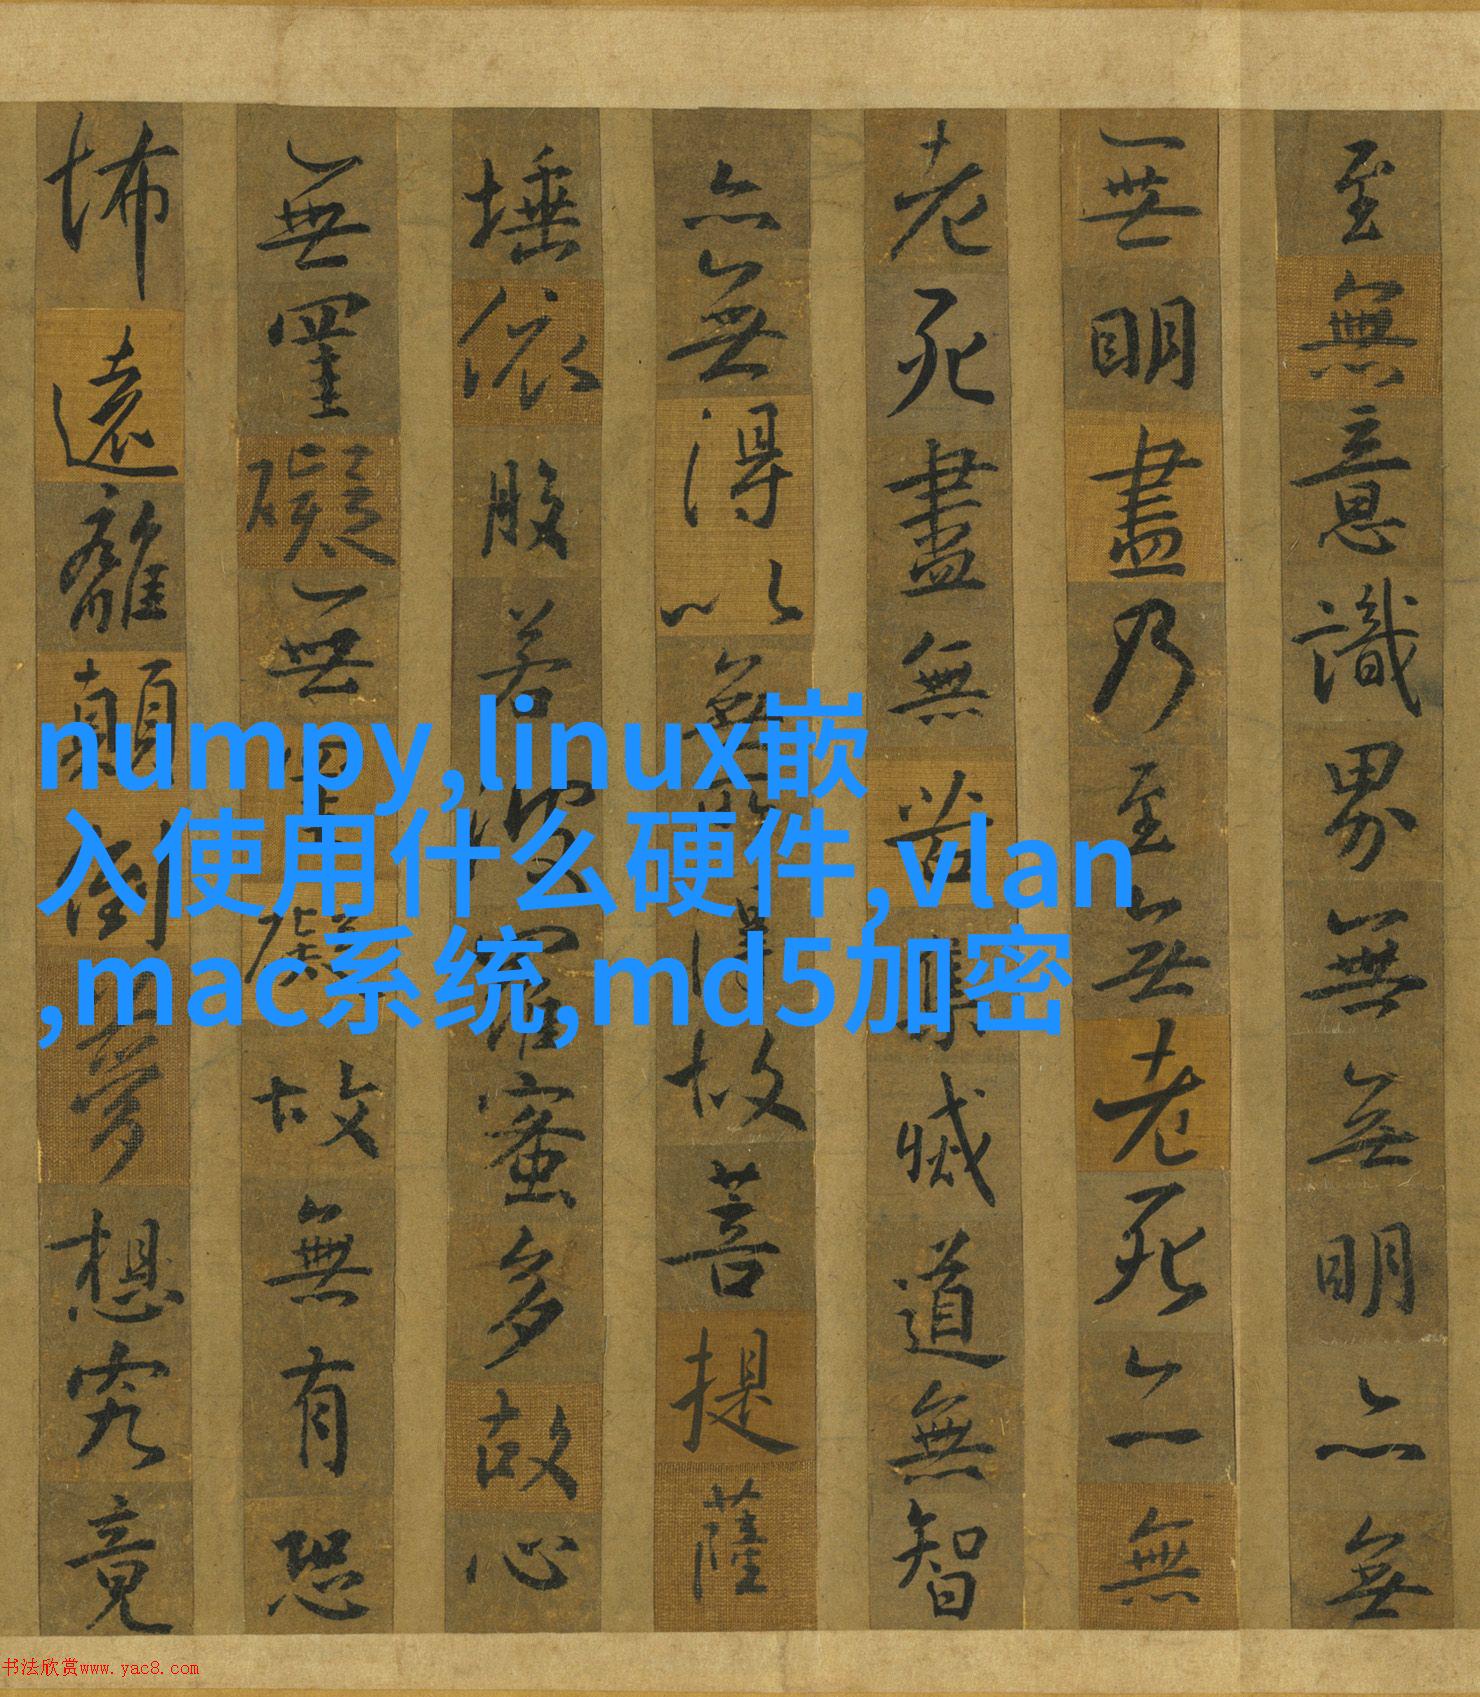 至無意識界無無明亦無
無明盡乃至無老死亦無
老死盡無苦集滅道無智
亦無得以無所得故菩提薩
埵依般若波羅蜜多故心
無罣礙無罣礙故無有恐
怖遠離顛倒夢想究竟
numpy,linux嵌
入使用什么硬件,vlan
,mac系统,md5加密
书法欣赏www.yac8.com